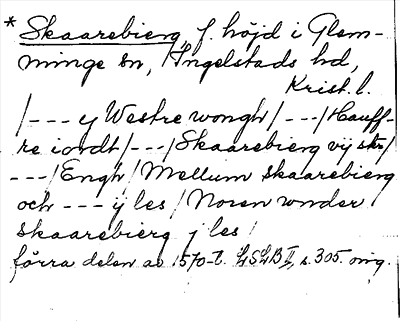 * Skaarebierg, f. höjd i Glem-
minge sn, Ingelstads hd,
Krist. l.
/--- y Westre wongh /---/ Hauff-
re iordt /---/ Skaarebierg vij str/
---/ Engh / Mellum skaarebierg
och --- ij les / Noren wnder
skaarebierg j les /
förra delen av 1570-t. LSLB II, s. 305. orig.